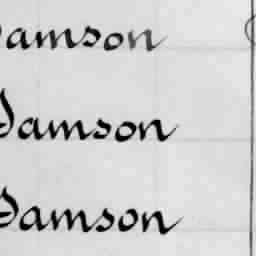 Damson
Damson
Damson